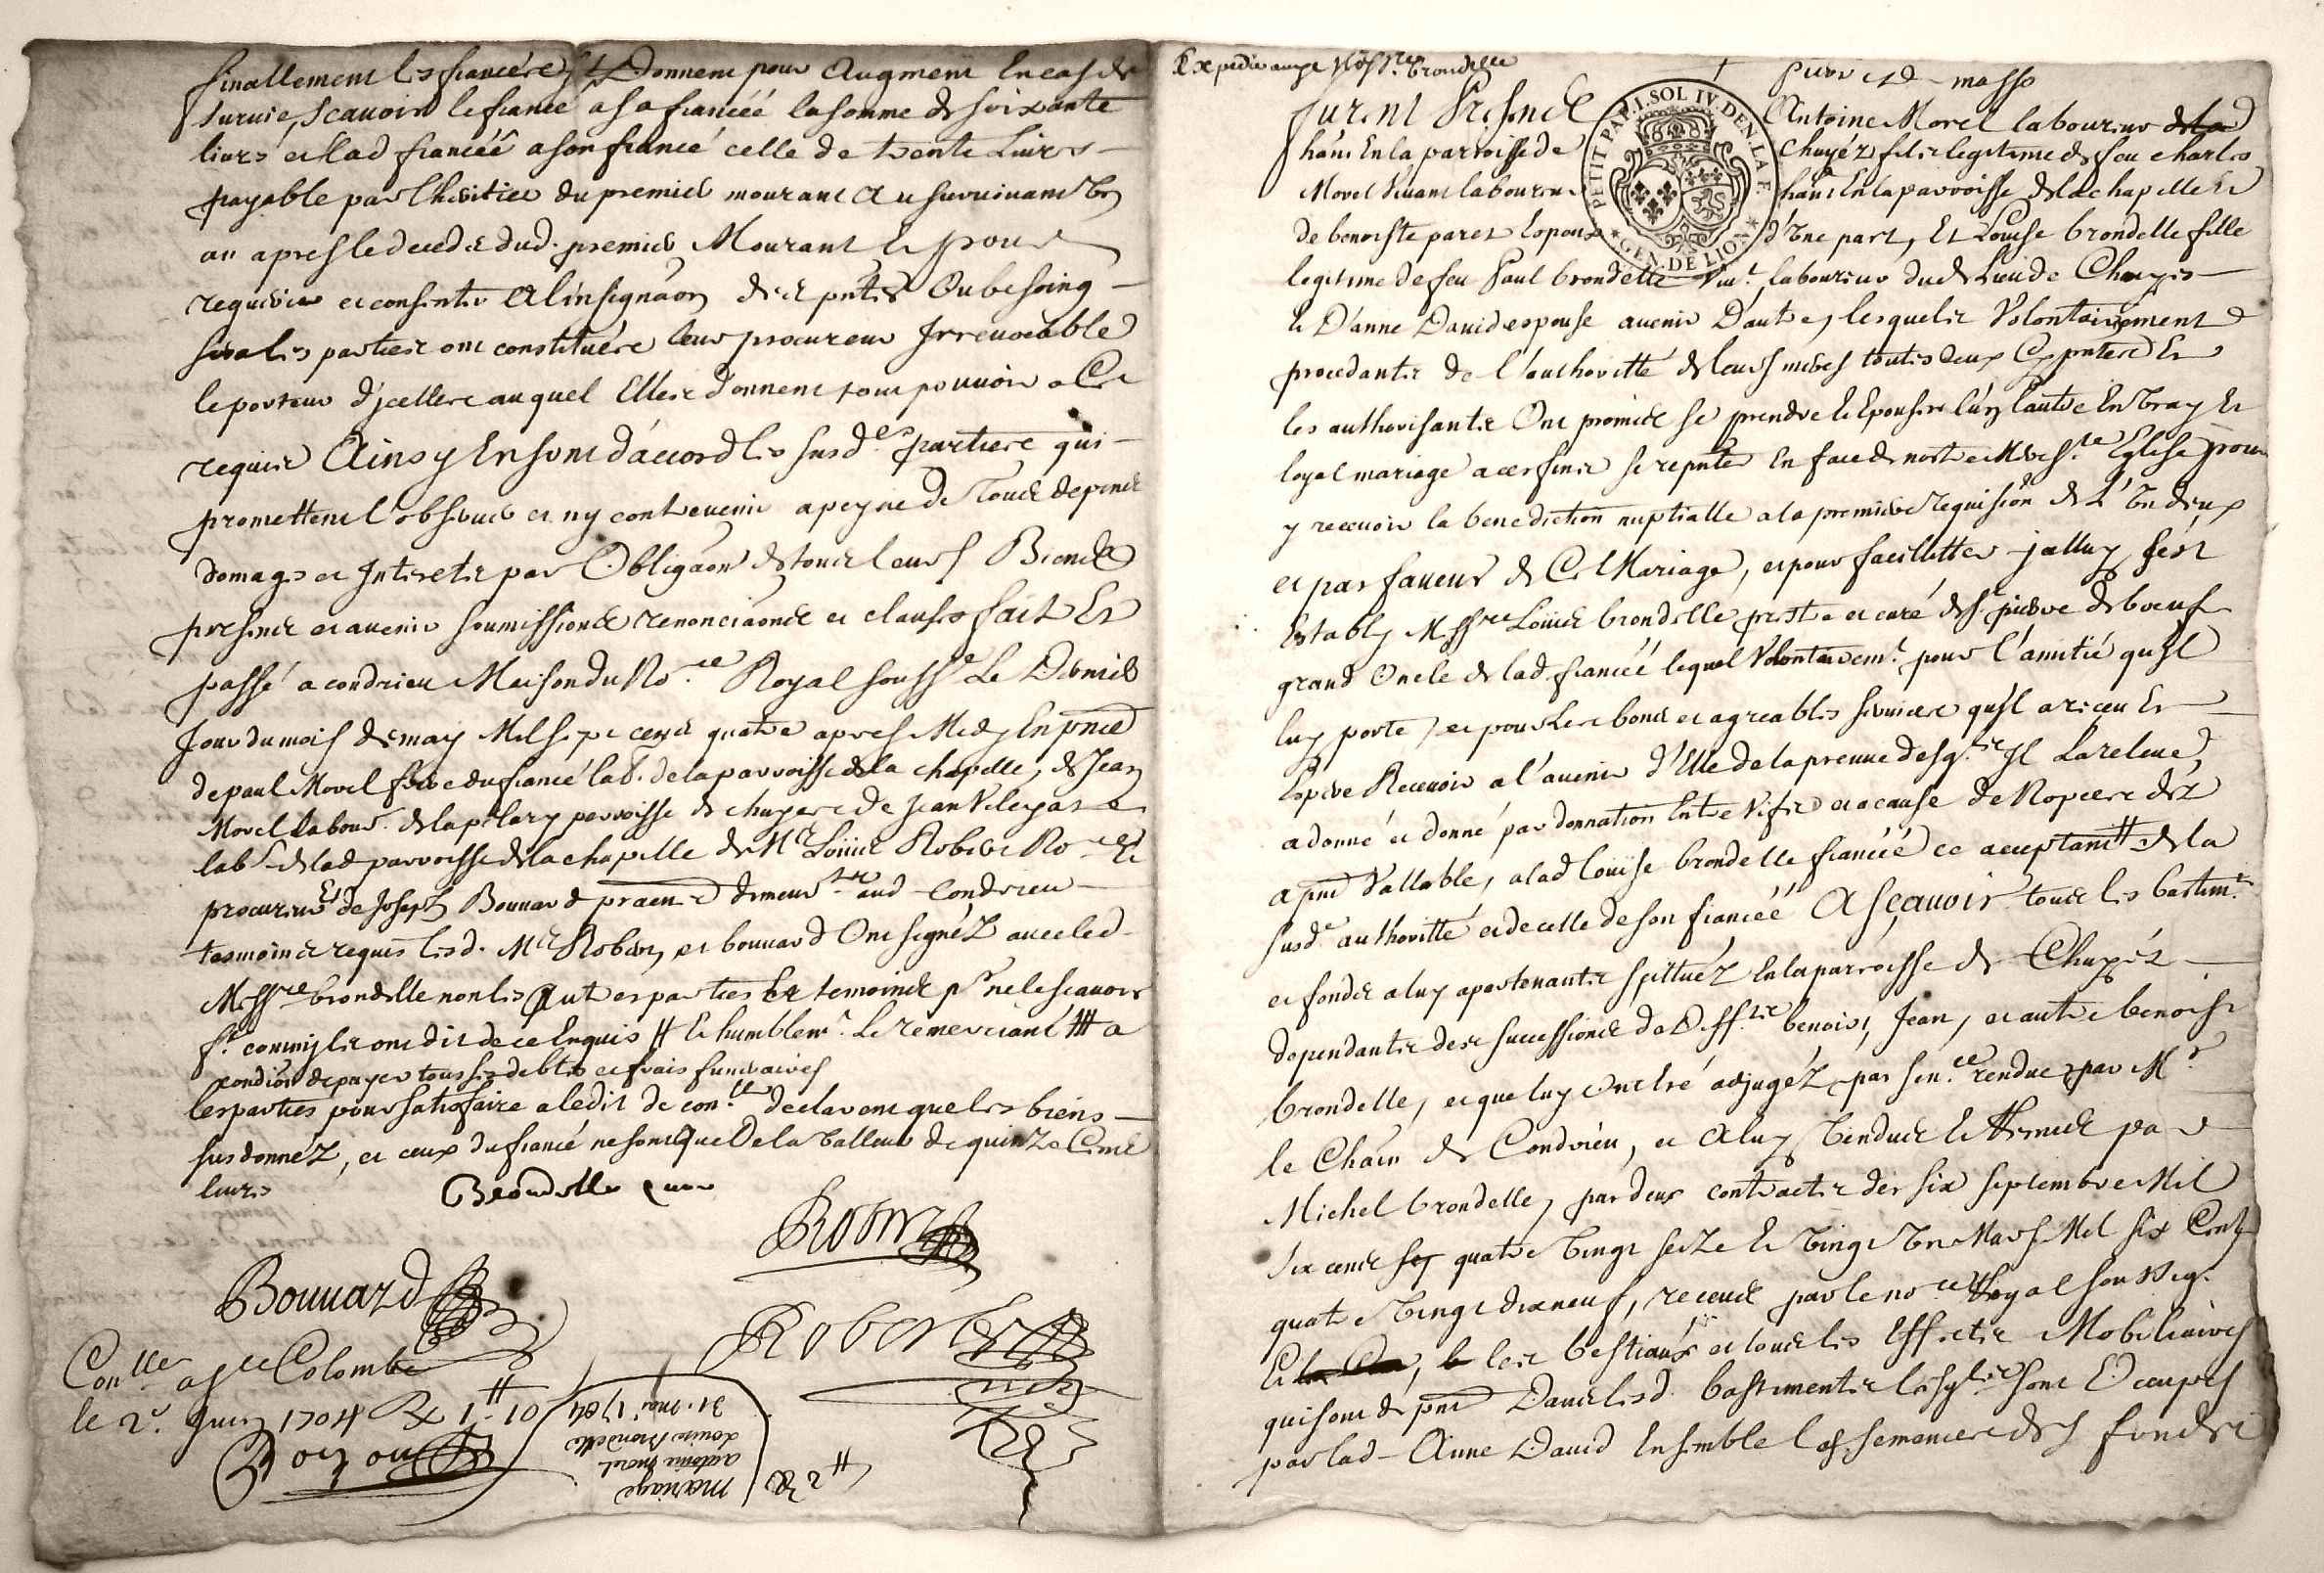 finallement les fiancéés se Donnent pour Augment En cas de
survie, Scauoir le fiancé a sa fiancéé la somme de soixante
liures et lad fiancéé a son fiancé celle de trente Liures
payable par l'heritier du premier mourant Au suruiuant Un
an apres le deceds dud. premier Mourant Et pour
requerir et consentir A l'insignaôn des pntes Ou besoing
sera les parties ont constituéz leur procureur Irreuocable
le porteur d'jcelles auquel Elles donnent tout pouuoir a Ce
requis Ainsy En sont d'accord les susd.es parties qui
promettent l'obseruer et ny contreuenir a peyne de Tous depens
domages et Interets par Obligaôn de tous leurs Biens
presents et auenir soumissions renonciaôns et clauses fait Et
passé a condrieu Maison du No.re Royal souss.e Le Dernier
Jour du mois de may Mil sept cents quatre apres Midy En pnce
de paul Morel frere du fiancé lab.r de la parroisse de la chapelle, de Jean
Morel Labour. de la parroisse de chuyes et de Jean
lab.r de lad parroisse de la chapelle de M.e Loüis Robert No.re Et
procureur Et de Joseph Bouuard praen demeur.ts aud Condrieu
tesmoins requis lesd. M.e Robert et bouuard Ont signéz auec led
Mess.re brondelle non les Autres parties Et temoins p.r ne le scauoir
f.e comm'jls ont dit de ce Enquis # Et humblem.t Le remerciant ### a
condiôn de payer tous ses debtes et frais funeraires
les parties pour satisfaire a ledit de con.lle declarent que les biens
susdonnéz, et ceux du fiancé ne sont que De la Valleur de quinze Cents
liures
Brondelle curé
Robert
Bouuard
Robert
Con.lle a S.te Colombe
le 2.e Juin 1704 R 1# 10
mariage
antoine morel
Louise Brondelle
31. mai 1704
R 2#
Expedié aux Mess.re brondelle
Furent Presents
Antoine Morel laboureur
hânt En la parroisse de Chuyéz fils legitime de feu charles
Morel Viuant laboureur hânt En la parroisse de la chapelle Et
de benoiste paret Espoux d'Une part, Et Louise brondelle fille
legitime de feu Paul brondelle Viu.t laboureur dud Lieu de Chuyes
Et D'anne Dauid espouse auenir D'autre, lesquels Volontairement
procedants de l'authoritté de leurs meres toutes deux Cy pntes Et
les authorisants Ont promis se prendre Et Epouser l'un l'autre En Vray Et
loyal mariage a ces fins se repnter En face de notre Mere S.te Eglise pour
y receuoir la benediction nuptialle a la premiere requision de L'Un d'eux
et par faueur de Ce Mariage, et pour facilitter jcelluy s'est
Estably Mess.re Loüis brondelle prestre et curé de S.t pierre de boeuf
grand Oncle de lad fiancéé lequel Volontairem.t pour l'amitié qu'Il
luy porte, et pour Les bons et agreables seruices qu'Il a receu Et
Espere Receuoir a l'auenir d'Elle de la preuue desq.ls Il La releue,
a donné et donne par donnation Entre Vifs et a cause de Nopces déz
a pnt Vallable, a lad Loüise brondelle fiancéé ce acceptant # de la
susd.e authoritté et de celle de son fiancéé A sçauoir tous les bastim.ts
et fonds a luy apartenants scittuéz En la parroisse de Chuyés
dependants des successions de Deff.ts benoist, Jean, et autre benoist
brondelle, et que luy Ont Eté adjugéz par sen.ce rendue par M.r
le Chain de Condrieu, et A luy Vendus Et Remis par
Michel brondelle, par deux contracts des six septembre Mil
six cents quatre Vingt seize Et Vingt Un Mars Mil six Cents
quatre Vingt dix neuf, receus par le no.re Royal soussig.
Et, les bestiaux et tous les Effects Mobiliaires
qui sont de pnt Dans lesd. bastiments lesq.ls sont Occupes
par lad Anne Dauid Ensemble les semences des fonds
PETIT PAP. I. SOL IV. DEN. LA F. GEN. DE LION